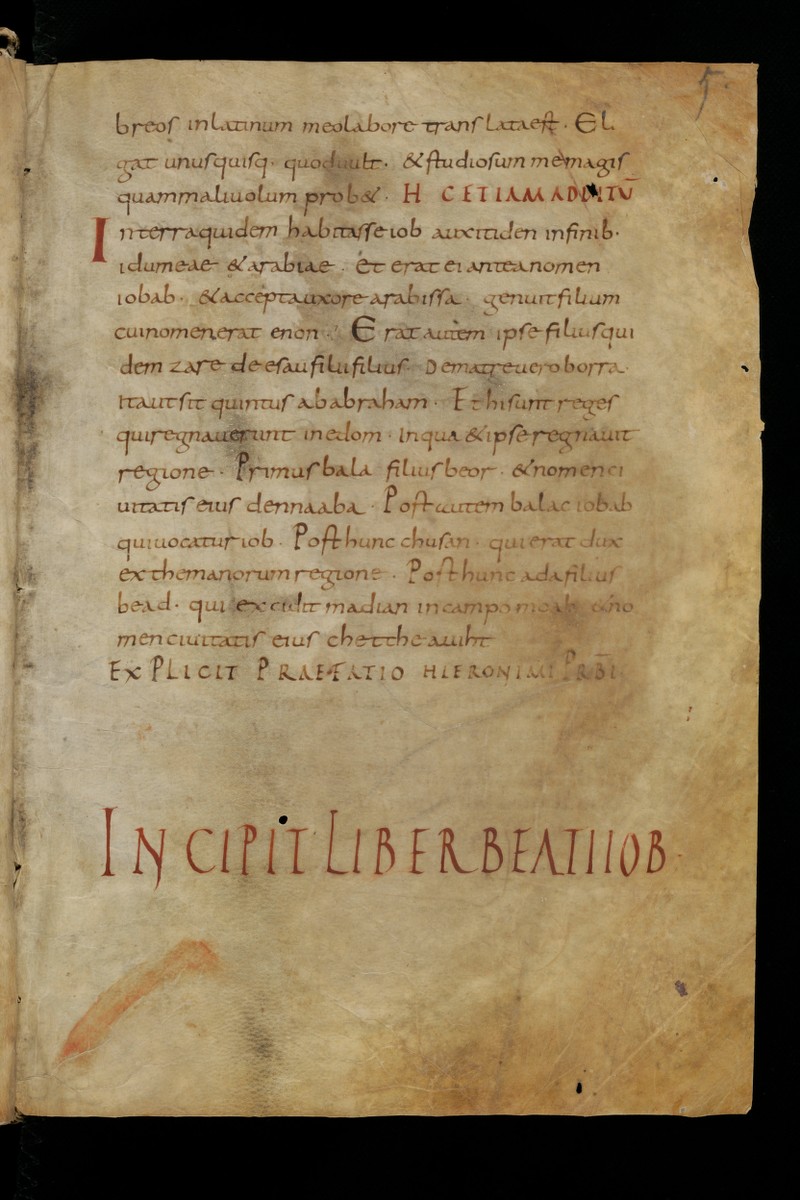 5
breos in latinum meo labore translata est · El
gat unusquisq· quod uult · & studiosum me magis
quam maliuolum prob& · H C ETIAM ADDITŪ
In terra quidem habitasse iob auxitiden in finib·
idumeae & arabiae · et erat ei antea nomen
iobab · & accepta uxore arabissa · genuit filium
cui nomen erat enon · Erat autem ipse filius qui
dem zare de esau filii filius · De matre uero borra ·
Ita ut sit quintus ab abraham · Et hi sunt reges
qui regnauerunt in edom · In qua & ipse regnauit
regione · Primus bala filius beor · & nomen ci
uitatis eius dennaaba · Post autem balac iobab
qui uocatur iob · Post hunc chusan · qui erat dux
ex themanorum regione · Post hunc ada filius
bead · qui excidit madian in campo moab & no
men ciuitatis eius chetcheauiht
EXPLICIT PRAEFATIO HIERONIMI PRBI
INCIPIT LIBER BEATI IOB ·